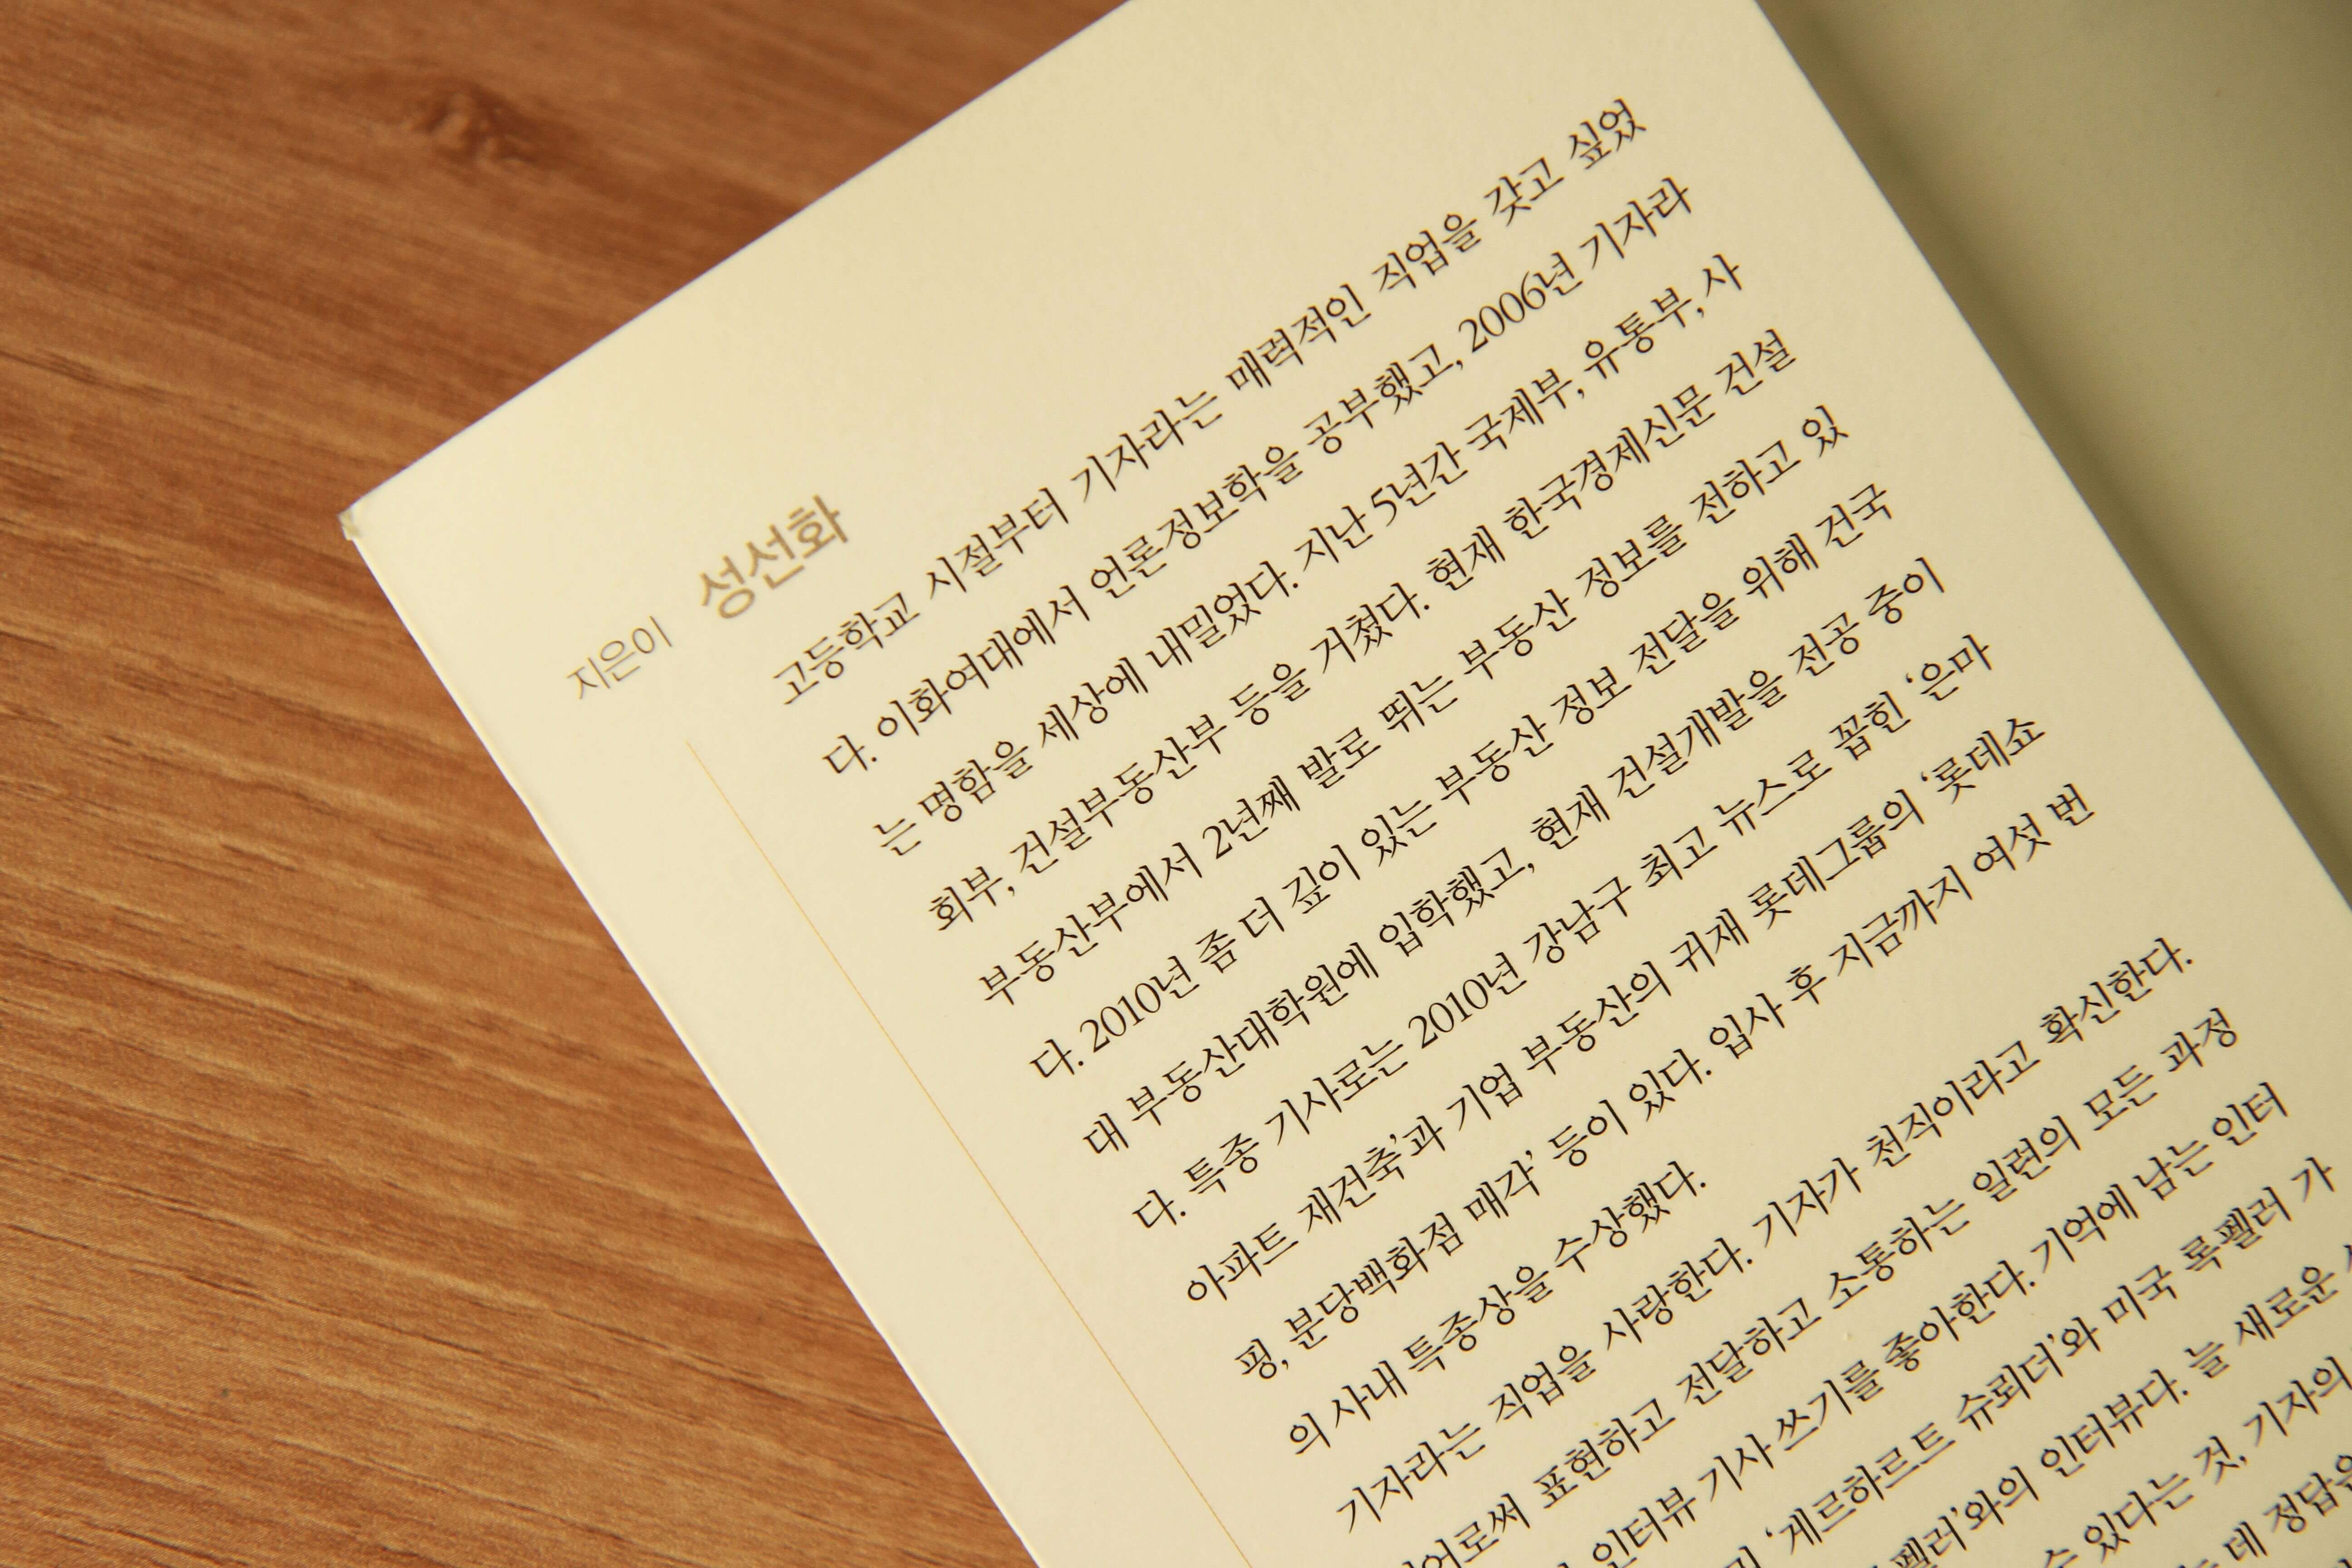 지은이 성선화
고등학교 시절부터 기자라는 매력적인 직업을 갖고 싶었
다. 이화여대에서 언론정보학을 공부했고, 2006년 기자라
는 명함을 세상에 내밀었다. 지난 5년간 국제부, 유통부, 사
회부, 건설부동산부 등을 거쳤다. 현재 한국경제신문 건설
부동산부에서 2년째 발로 뛰는 부동산 정보를 전하고 있
다. 2010년 좀 더 깊이 있는 부동산 정보 전달을 위해 건국
대 부동산대학원에 입학했고, 현재 건설개발을 전공 중이
다. 특종 기사로는 2010년 강남구 최고 뉴스로 꼽힌 ‘은마
아파트 재건축’과 기업 부동산의 귀재 롯데그룹의 ‘롯데쇼
핑, 분당백화점 매각’ 등이 있다. 입사 후 지금까지 여섯 번
의 사내 특종상을 수상했다.
기자라는 직업을 사랑한다. 기자가 천직이라고 확신한다.
표현하고 전달하고 소통하는 일련의 모든 과정
인터뷰 기사 쓰기를 좋아한다. 기억에 남는 인터
‘게르하르트 슈뢰더’와 미국 록펠러 가
인터뷰다. 늘 새로운
있다는 것, 기자의
데